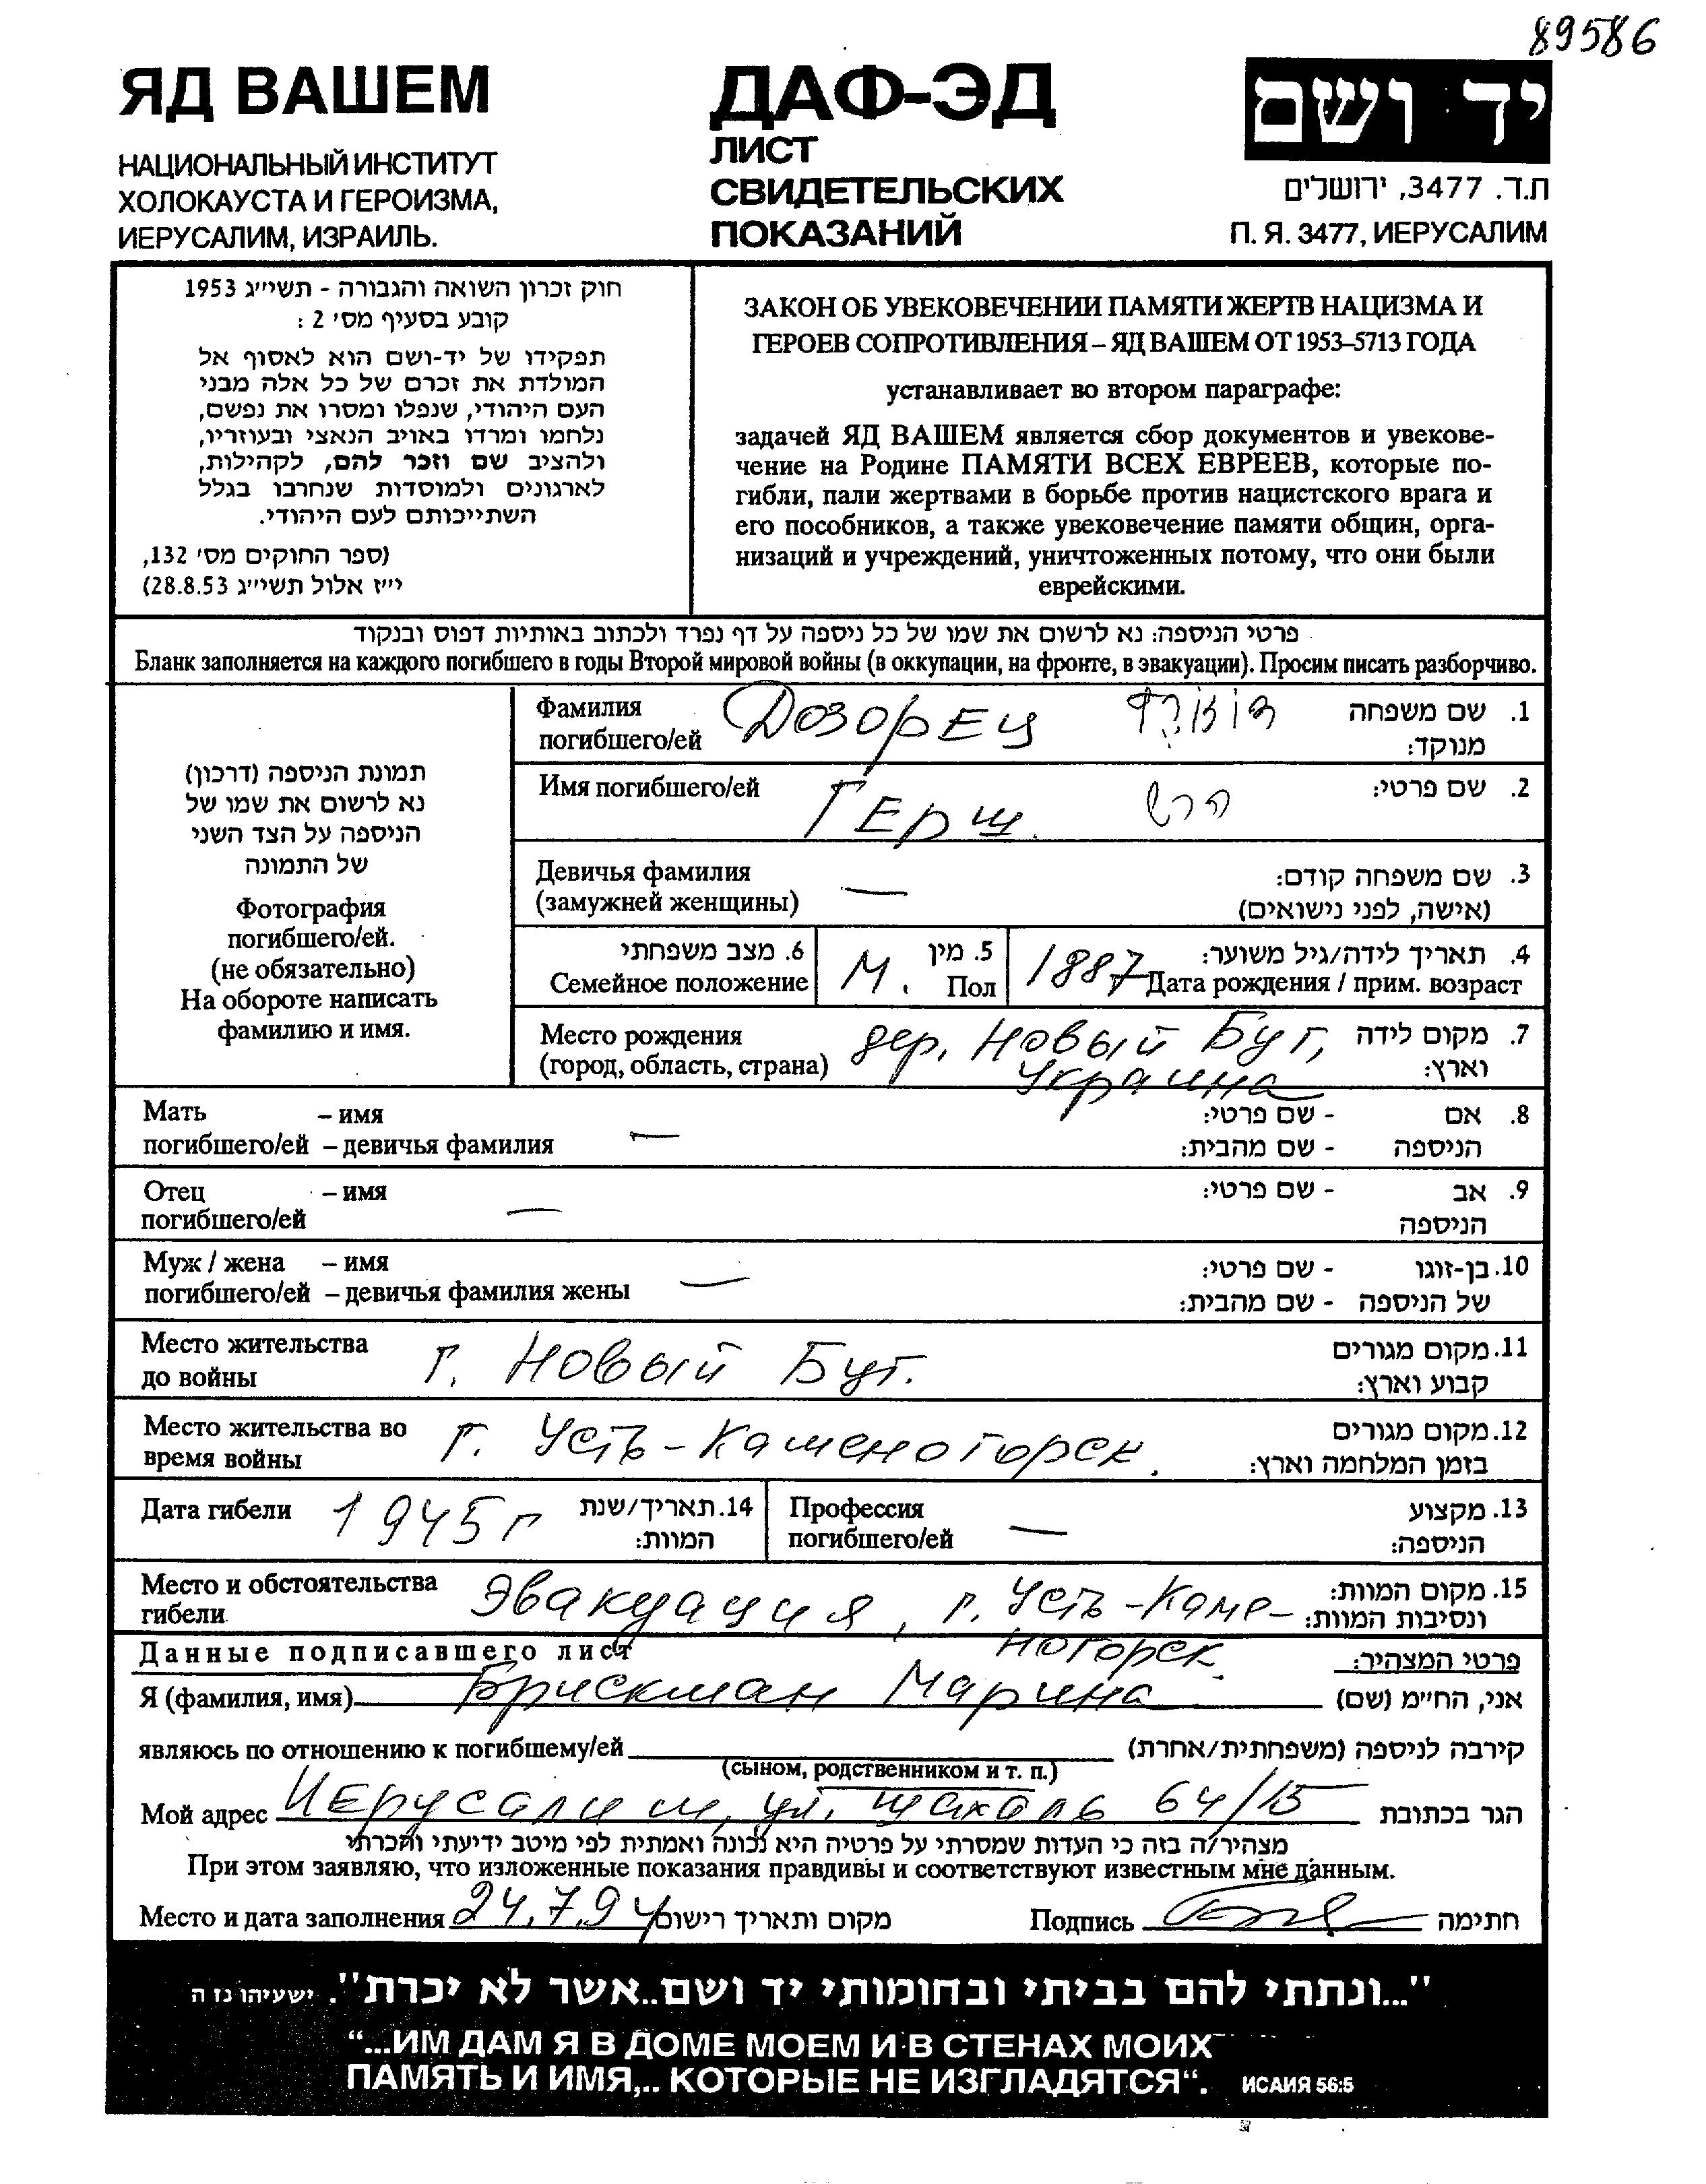 89586
ЯД ВАШЕМ
НАЦИОНАЛЬНЫЙ ИНСТИТУТ
ХОЛОКАУСТА И ГЕРОИЗМА,
ИЕРУСАЛИМ, ИЗРАИЛЬ.
ДАФ-ЭД
ЛИСТ
СВИДЕТЕЛЬСКИХ
ПОКАЗАНИЙ
יד ושם
ת.ד. 3477, ירושלים
П. Я. 3477, ИЕРУСАЛИМ
חוק זכרון השואה והגבורה - תשי״ג 1953
קובע בסעיף מס׳ 2 :
תפקידו של יד-ושם הוא לאסוף אל
המולדת את זכרם של כל אלה מבני
העם היהודי, שנפלו ומסרו את נפשם,
נלחמו ומרדו באויב הנאצי ובעוזריו,
ולהציב שם וזכר להם, לקהילות,
לארגונים ולמוסדות שנחרבו בגלל
השתייכותם לעם היהודי.
(ספר החוקים מס׳ 132,
י״ז אלול תשי״ג 28.8.53)
ЗАКОН ОБ УВЕКОВЕЧЕНИИ ПАМЯТИ ЖЕРТВ НАЦИЗМА И
ГЕРОЕВ СОПРОТИВЛЕНИЯ – ЯД ВАШЕМ ОТ 1953–5713 ГОДА
устанавливает во втором параграфе:
задачей ЯД ВАШЕМ является сбор документов и увекове-
чение на Родине ПАМЯТИ ВСЕХ ЕВРЕЕВ, которые по-
гибли, пали жертвами в борьбе против нацистского врага и
его пособников, а также увековечение памяти общин, орга-
низаций и учреждений, уничтоженных потому, что они были
еврейскими.
פרטי הניספה: נא לרשום את שמו של כל ניספה על דף נפרד ולכתוב באותיות דפוס ובנקוד
Бланк заполняется на каждого погибшего в годы Второй мировой войны (в оккупации, на фронте, в эвакуации). Просим писать разборчиво.
תמונת הניספה (דרכון)
נא לרשום את שמו של
הניספה על הצד השני
של התמונה
Фотография
погибшего/ей.
(не обязательно)
На обороте написать
фамилию и имя.
Фамилия
погибшего/ей Дозорец
1. שם משפחה
מנוקד:
Имя погибшего/ей Герш הרש 2. שם פרטי:
Девичья фамилия
(замужней женщины) —
3. שם משפחה קודם:
(אישה, לפני נישואים)
6. מצב משפחתי
Семейное положение
М. 5. מין
Пол
1887 4. תאריך לידה/גיל משוער:
Дата рождения / прим. возраст
Место рождения
(город, область, страна) дер. Новый Буг,
Украина
7. מקום לידה
וארץ:
Мать – имя
погибшего/ей – девичья фамилия —
8. אם - שם פרטי:
הניספה - שם מהבית:
Отец – имя
погибшего/ей —
9. אב - שם פרטי:
הניספה
Муж / жена – имя
погибшего/ей – девичья фамилия жены —
10. בן-זוגו - שם פרטי:
של הניספה - שם מהבית:
Место жительства
до войны г. Новый Буг.
11. מקום מגורים
קבוע וארץ:
Место жительства во
время войны г. Усть-Каменогорск.
12. מקום מגורים
בזמן המלחמה וארץ:
Дата гибели 1945 г
14. תאריך/שנת
המוות:
Профессия
погибшего/ей —
13. מקצוע
הניספה:
Место и обстоятельства
гибели Эвакуация, г. Усть-Каме-
ногорск.
15. מקום המוות:
ונסיבות המוות:
Данные подписавшего лист פרטי המצהיר:
Я (фамилия, имя) Брискман Марина אני, הח״מ (שם)
являюсь по отношению к погибшему/ей קירבה לניספה (משפחתית/אחרת)
(сыном, родственником и т. п.)
Мой адрес Иерусалим, ул. Шахаль 64/15 הגר בכתובת
מצהיר/ה בזה כי העדות שמסרתי על פרטיה היא נכונה ואמתית לפי מיטב ידיעתי והכרתי
При этом заявляю, что изложенные показания правдивы и соответствуют известным мне данным.
Место и дата заполнения 24.7.94 מקום ותאריך רישום Подпись חתימה
"...ונתתי להם בביתי ובחומותי יד ושם..אשר לא יכרת". ישעיהו נז ה
“...ИМ ДАМ Я В ДОМЕ МОЕМ И В СТЕНАХ МОИХ
ПАМЯТЬ И ИМЯ,.. КОТОРЫЕ НЕ ИЗГЛАДЯТСЯ“. ИСАИЯ 56:5